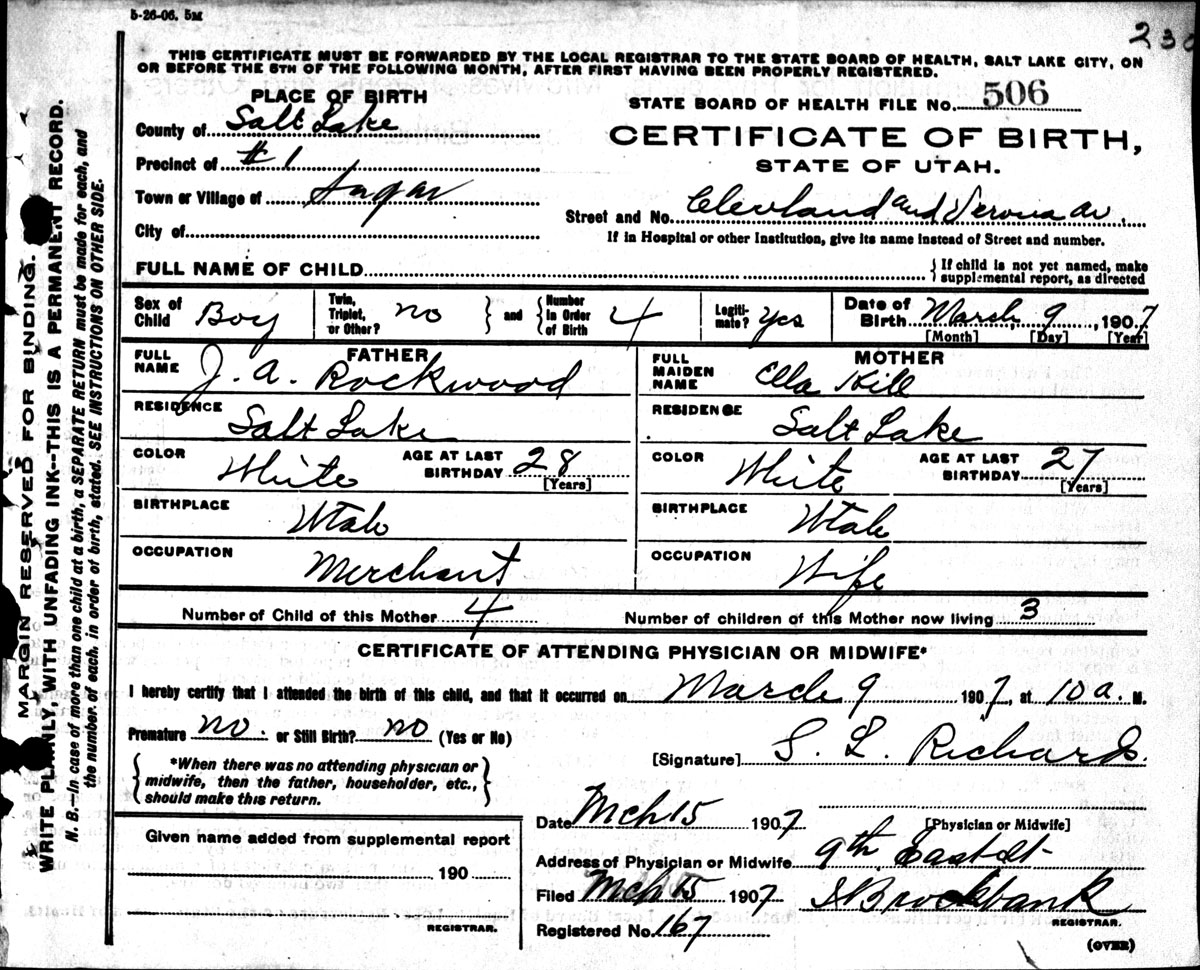 5-26-06. 5M
230
THIS CERTIFICATE MUST BE FORWARDED BY THE LOCAL REGISTRAR TO THE STATE BOARD OF HEALTH, SALT LAKE CITY, ON
OR BEFORE THE 5TH OF THE FOLLOWING MONTH, AFTER FIRST HAVING BEEN PROPERLY REGISTERED.
PLACE OF BIRTH
STATE BOARD OF HEALTH FILE NO. 506
County of Salt Lake
CERTIFICATE OF BIRTH,
Precinct of #1
STATE OF UTAH.
Town or Village of Sugar
Street and No. Clevland and Verona av.
City of
If in Hospital or other Institution, give its name instead of Street and number.
FULL NAME OF CHILD
If child is not yet named, make
supplemental report, as directed
Sex of Child Boy
Twin, Triplet, or Other? no
and Number In Order of Birth 4
Legiti- mate? yes
Date of Birth March 9, 1907
[Month] [Day] [Year]
FATHER
FULL NAME J. A. Rockwood
MOTHER
FULL MAIDEN NAME Ella Hill
RESIDENCE Salt Lake
RESIDENCE Salt Lake
COLOR White AGE AT LAST BIRTHDAY 28 [Years]
COLOR White AGE AT LAST BIRTHDAY 27 [Years]
BIRTHPLACE Utah
BIRTHPLACE Utah
OCCUPATION Merchant
OCCUPATION Wife
Number of Child of this Mother 4
Number of children of this Mother now living 3
CERTIFICATE OF ATTENDING PHYSICIAN OR MIDWIFE*
I hereby certify that I attended the birth of this child, and that it occurred on March 9 1907, at 10 a. M.
Premature no. or Still Birth? no (Yes or No)
[Signature] S. L. Richards.
*When there was no attending physician or
midwife, then the father, householder, etc.,
should make this return.
Date Mch 15 1907
[Physician or Midwife]
Given name added from supplemental report
190
REGISTRAR.
Address of Physician or Midwife 9th East st
Filed Mch 15 1907 Brockbank
REGISTRAR.
Registered No. 167
(OVER)
MARGIN RESERVED FOR BINDING.
WRITE PLAINLY, WITH UNFADING INK--THIS IS A PERMANENT RECORD.
N. B.--In case of more than one child at a birth, a SEPARATE RETURN must be made for each, and
the number of each, in order of birth, stated. SEE INSTRUCTIONS ON OTHER SIDE.